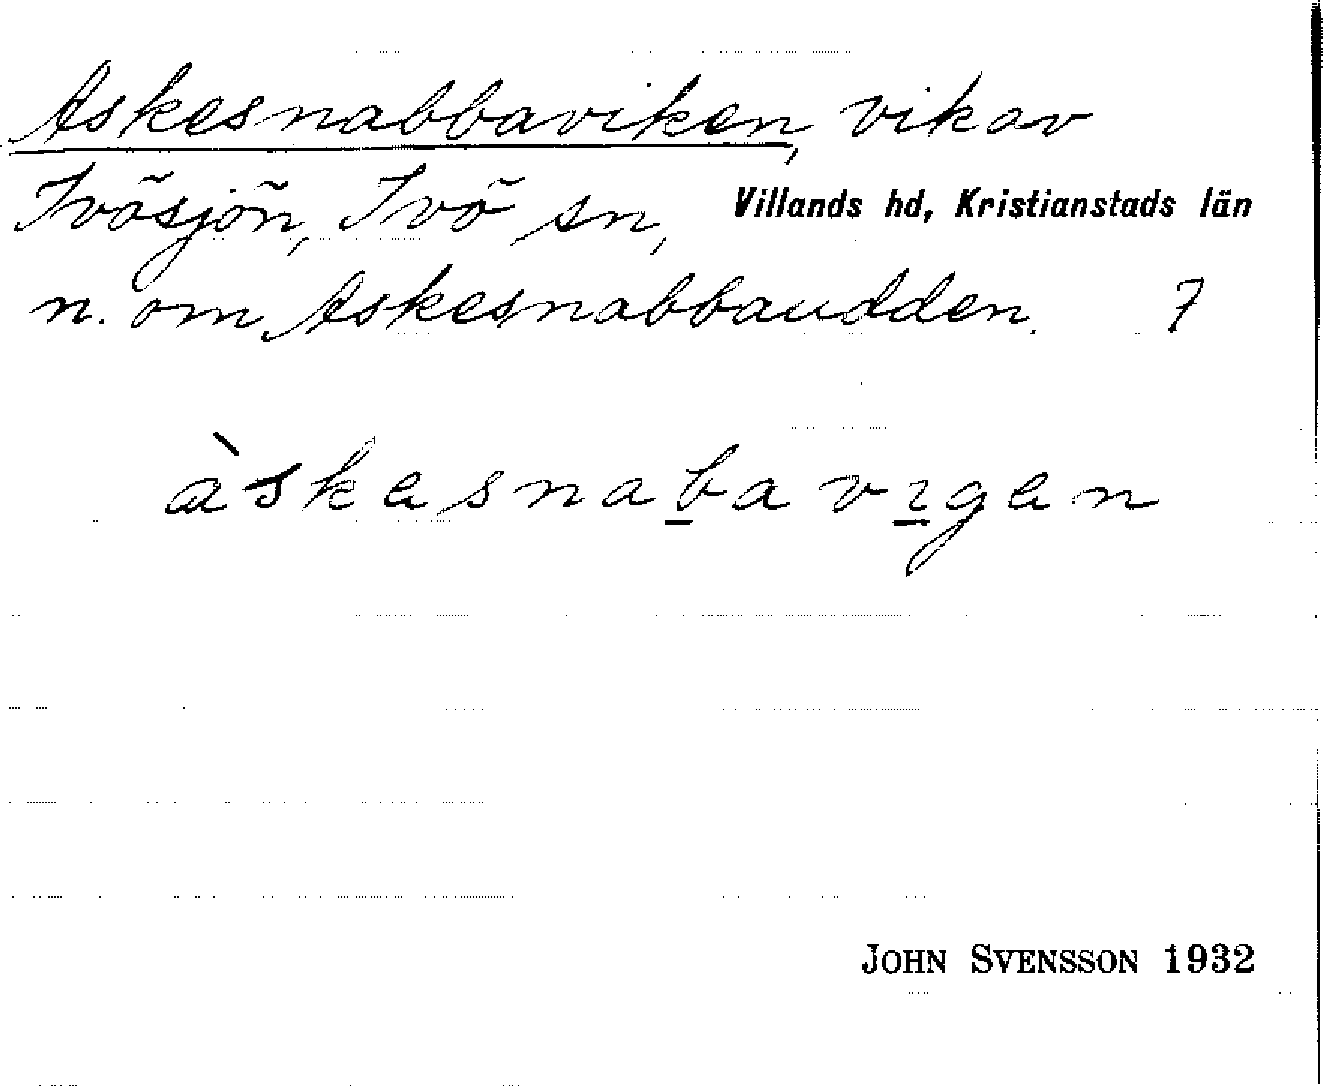 Askesnabbaviken, vik av
Ivösjön, Ivö sn, Villands hd, Kristianstads län
n. om Askesnabbaudden. 7
àskesnaba vigen
JOHN SVENSSON 1932